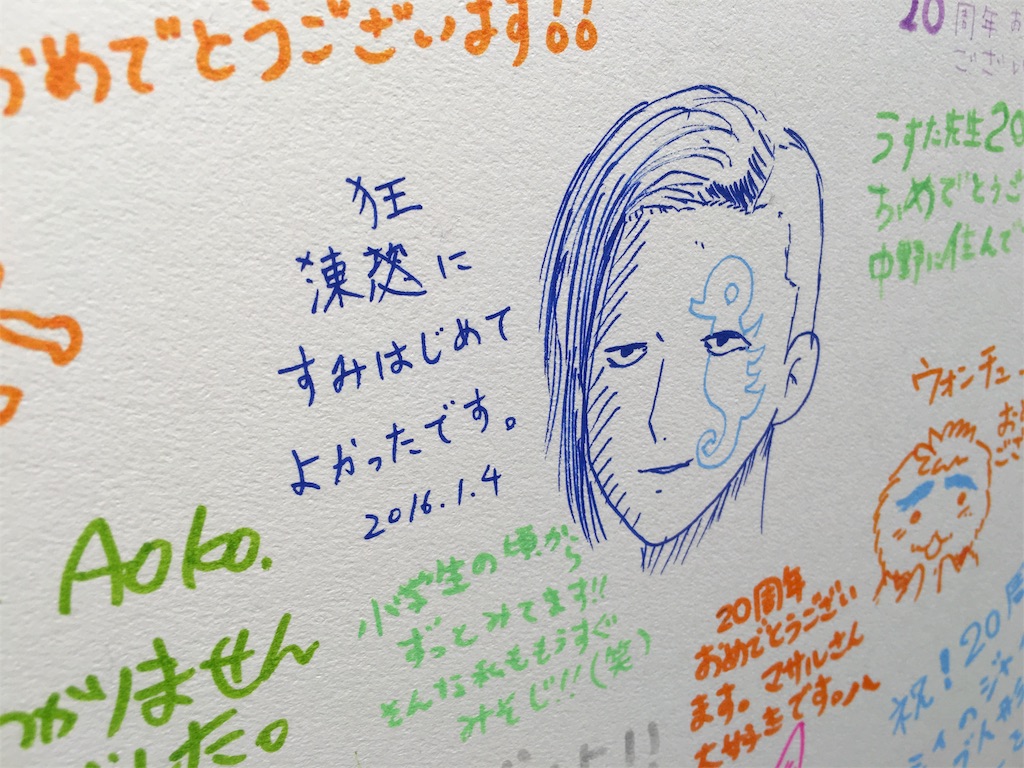 おめでとうございます!!
20周年お
ござい
うすた先生20
おめでとうご
中野に住んで
狂
すみはじめて
よかったです。
2016.1.4
ウォンチュー
お
ござ
Aoko.
つかりません
した。
小学生の頃から
ずっとみてます!!
そんな私ももうすぐ
みそじ!!(笑)
20周年
おめでとうござい
ます。マサルさん
大好きです。
祝!20周